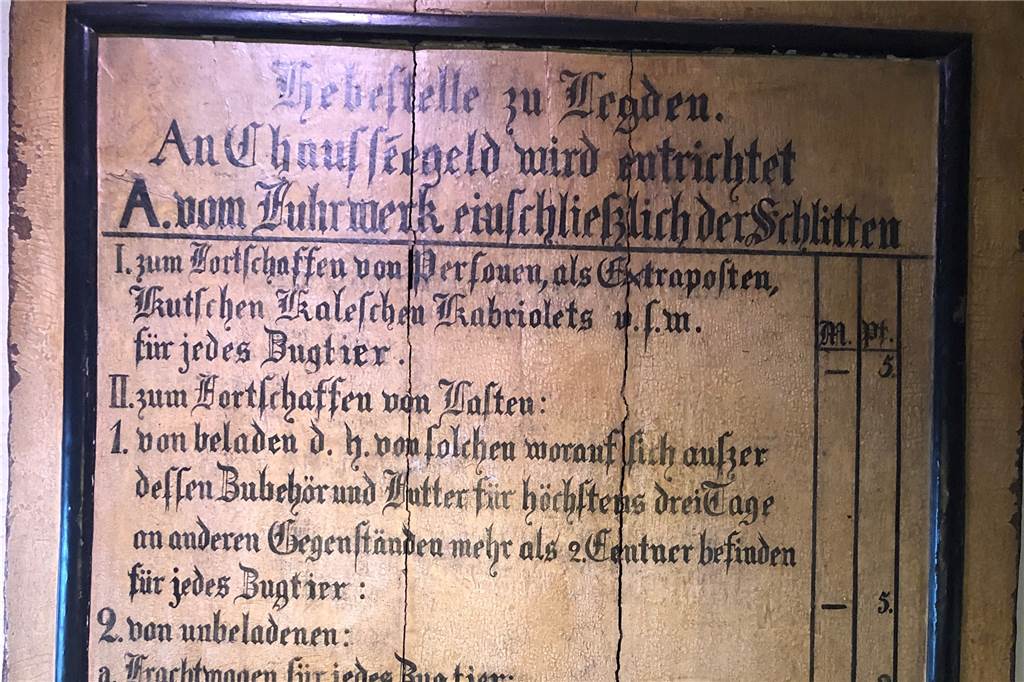 Hebestelle zu Legden.
An Chausséegeld wird entrichtet
A. vom Fuhrwerk einschließlich der Schlitten
I. zum Fortschaffen von Personen, als Extraposten,
Kutschen Kaleschen Kabriolets u.s.w.
M. Pf.
für jedes Zugtier. — 5.
II. zum Fortschaffen von Lasten:
1. von beladen d. h. von solchen worauf sich außer
dessen Zubehör und Futter für höchstens drei Tage
an anderen Gegenständen mehr als 2. Centner befinden
für jedes Zugtier: — 5.
2. von unbeladenen:
a. Frachtwagen für jedes Zugtier: